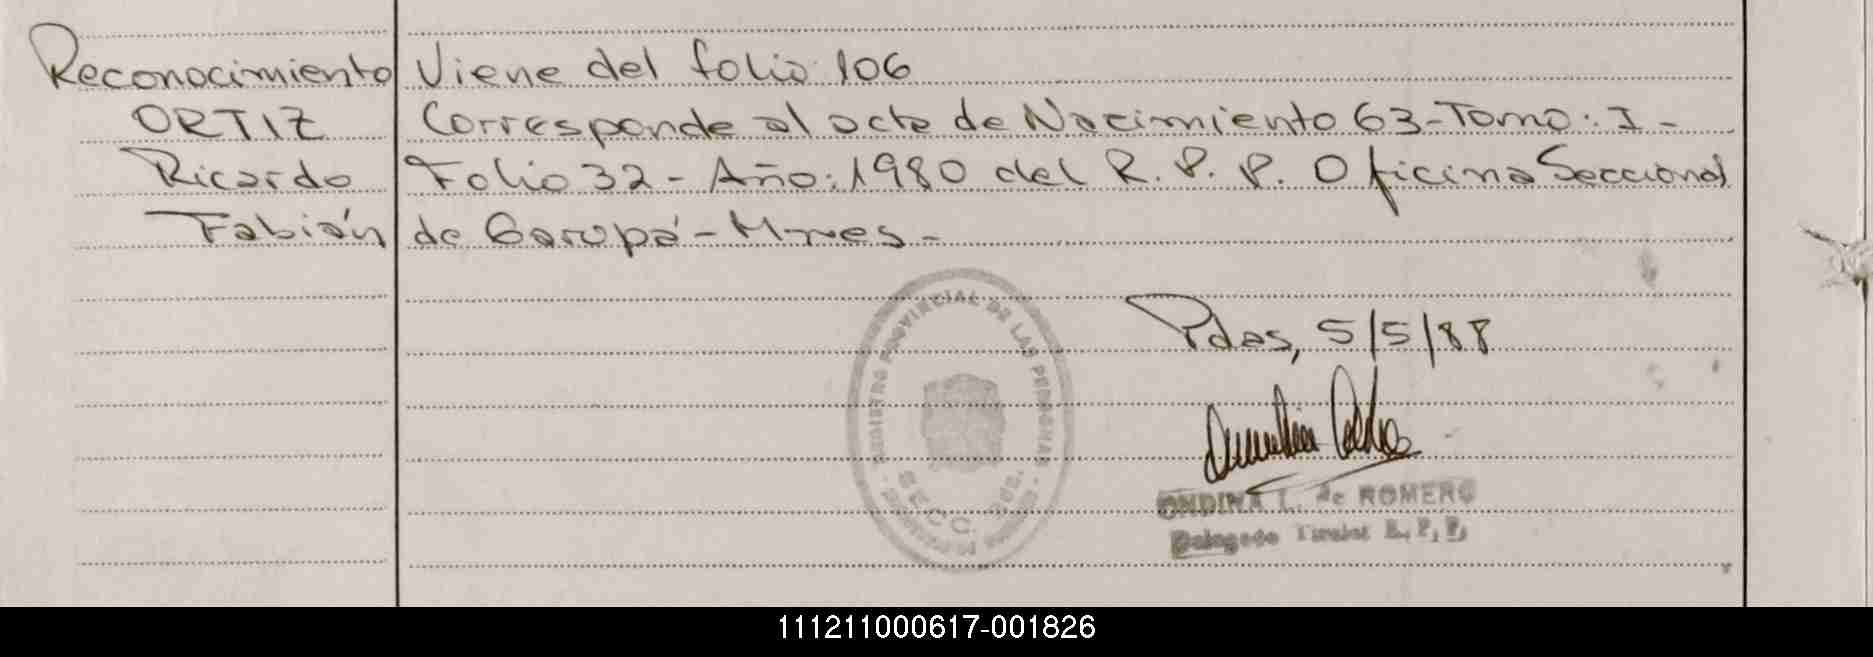 Reconocimiento
ORTIZ
Ricardo
Fabián
Viene del folio 106
Corresponde al acta de Nacimiento 63-Tomo: I-
Folio 32 - Año: 1980 del R. P. P. Oficina Seccional
de Garupá - Mnes -
REGISTRO PROVINCIAL DE LAS PERSONAS
SECC.
Pdas, 5/5/88
ONDINA L. de ROMERO
Delegado Titular R. P. P.
111211000617-001826